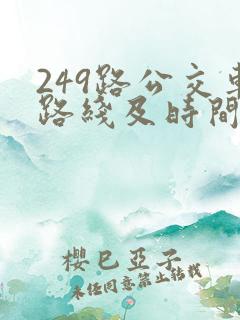 249路公交車
路綫及時間
櫻巳亞子
未经同意禁止转载